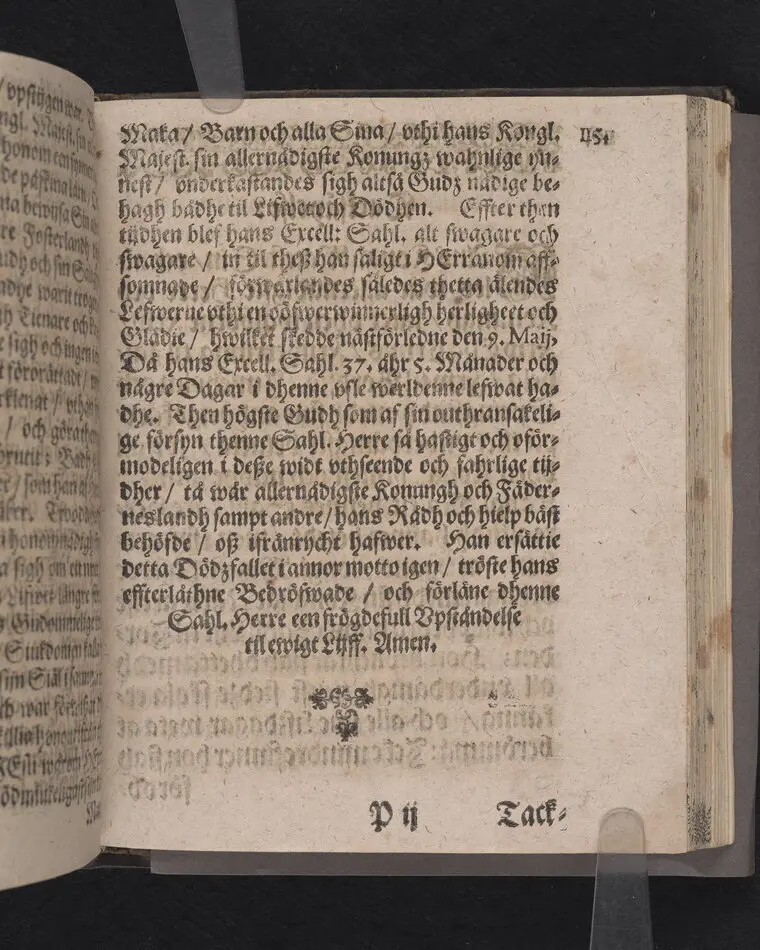 Maka / Barn och alla Sina / vthi hans Kongl. 115.
Majest. sin allernådigste Konungz wahnlige yn-
nest / vnderkastandes sigh altså Gudz nådige be-
hagh bådhe til Lifwet och Dödhen. Effter then
tijdhen blef hans Excell: Sahl. alt swagare och
swagare / in til theß han saligt i HErranom aff-
somnade / förwexlandes således thetta älendes
Lefwerne vthi en oöfwerwinnerligh herligheet och
Glädie / hwilket skedde nästförledne den 9. Maij,
Då hans Excell. Sahl. 37. åhr 5. Månader och
någre Dagar i dhenne vsle werldenne lefwat ha-
dhe. Then högste Gudh som af sin outhransakeli-
ge försyn thenne Sahl. Herre så hastigt och oför-
modeligen i deße widt vthseende och fahrlige tij-
dher / tå wår allernådigste Konungh och Fäder-
neslandh sampt andre / hans Rådh och hielp bäst
behöfde / oß ifrånrycht hafwer. Han ersättie
detta Dödzfallet i annor motto igen / tröste hans
effterlåthne Bedröfwade / och förläne dhenne
Sahl. Herre een frögdefull Vpståndelse
til ewigt Lijff. Amen.
P ij Tack-